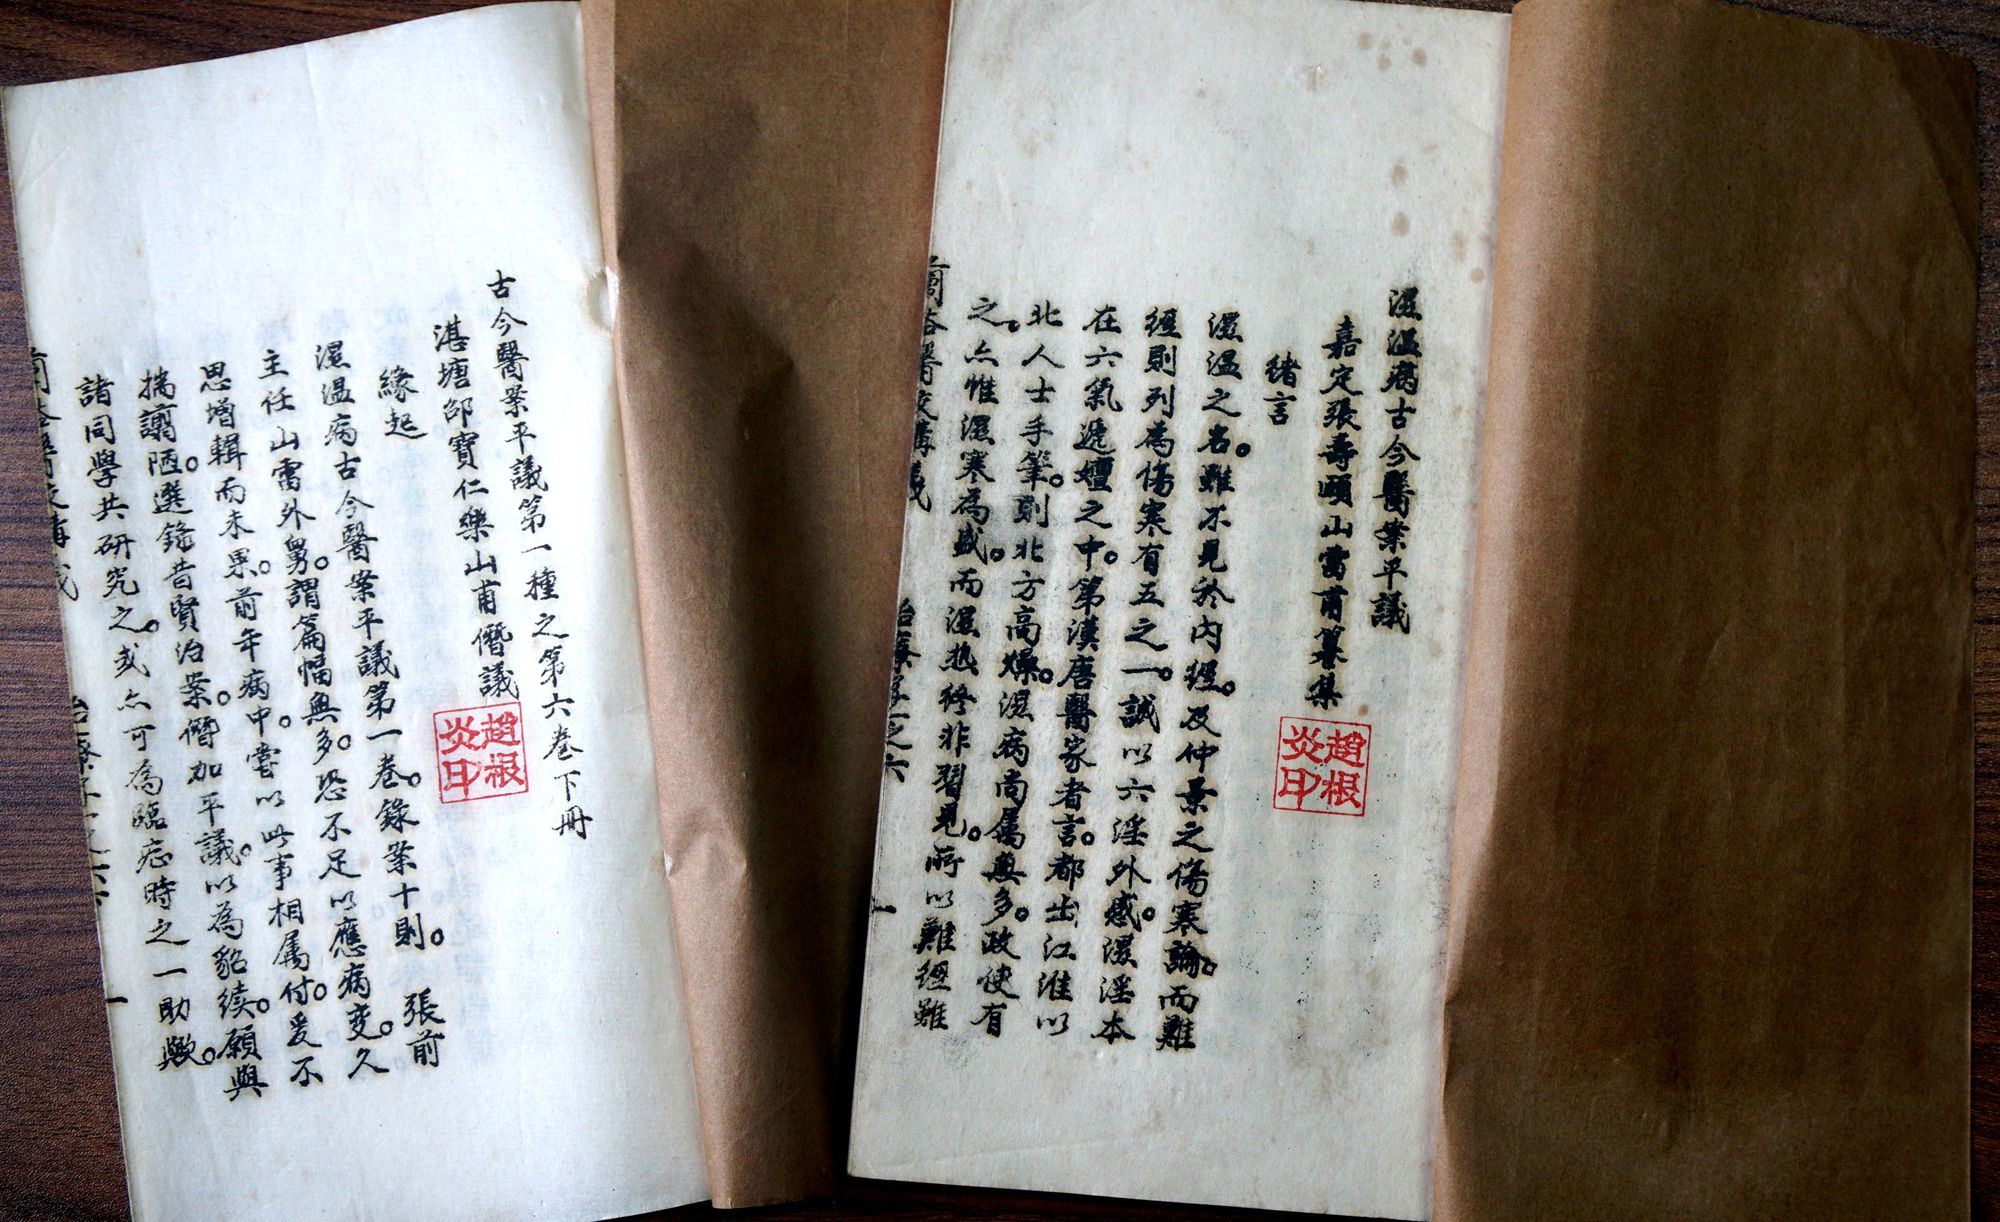 濕溫病古今醫案平議
嘉定張壽頤山雷甫纂集
趙根炎印
緒言
濕溫之名。雖不見於內經。及仲景之傷寒論。而難
經則列為傷寒有五之一。誠以六淫外感。濕淫本
在六氣遞嬗之中。第漢唐醫家者言。都出江淮以
北人士手筆。則北方高燥。濕病尚屬無多。政使有
之。亦惟濕寒為盛。而濕熱終非習見。所以難經雖
蘭谿醫校講義
治療學之六
一
古今醫案平議第一種之第六卷下冊
湛塘邵寶仁樂山甫僭議
趙根炎印
緣起
濕溫病古今醫案平議第一卷。錄案十則。張前
主任山雷外舅。謂篇幅無多。恐不足以應病變。久
思增輯而未果。前年病中。嘗以此事相屬付。爰不
揣謭陋。選錄昔賢治案。僭加平議。以為貂续。願與
諸同學共研究之。或亦可為臨症時之一助歟。
講義
一